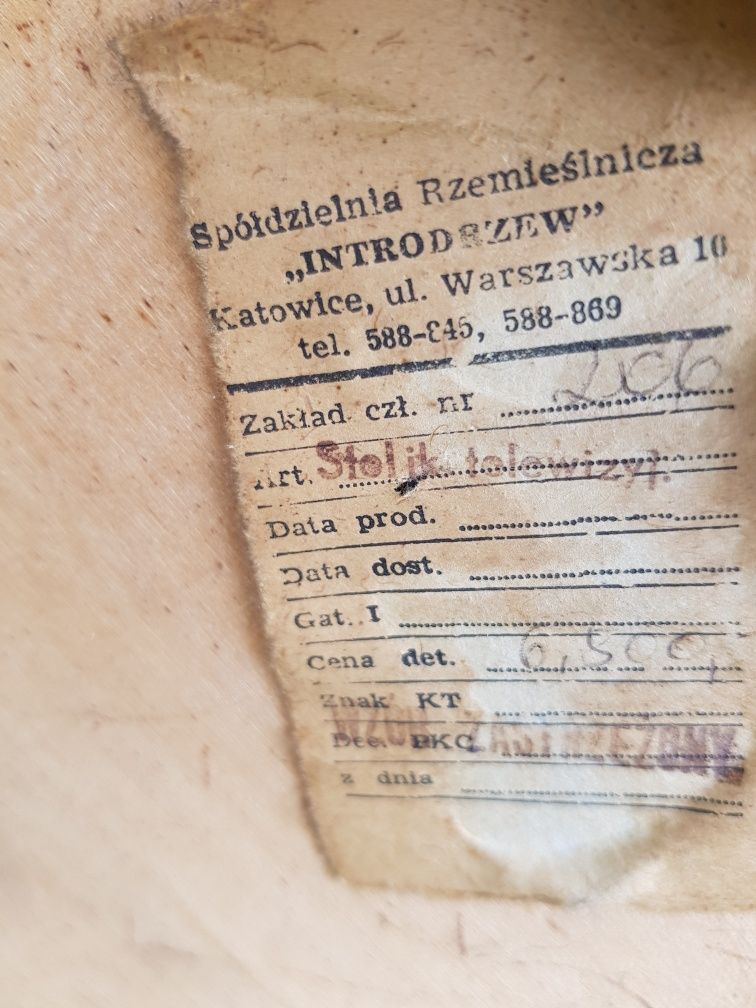 Spółdzielnia Rzemieślnicza
„INTRODRZEW”
Katowice, ul. Warszawska 10
tel. 588-845, 588-869
Zakład czł. nr 206
Art. Stolik telewizyj.
Data prod.
Data dost.
Gat. I
Cena det. 6,500,
Znak KT
WZÓR ZASTRZEŻONY
Dec. PKC
z dnia